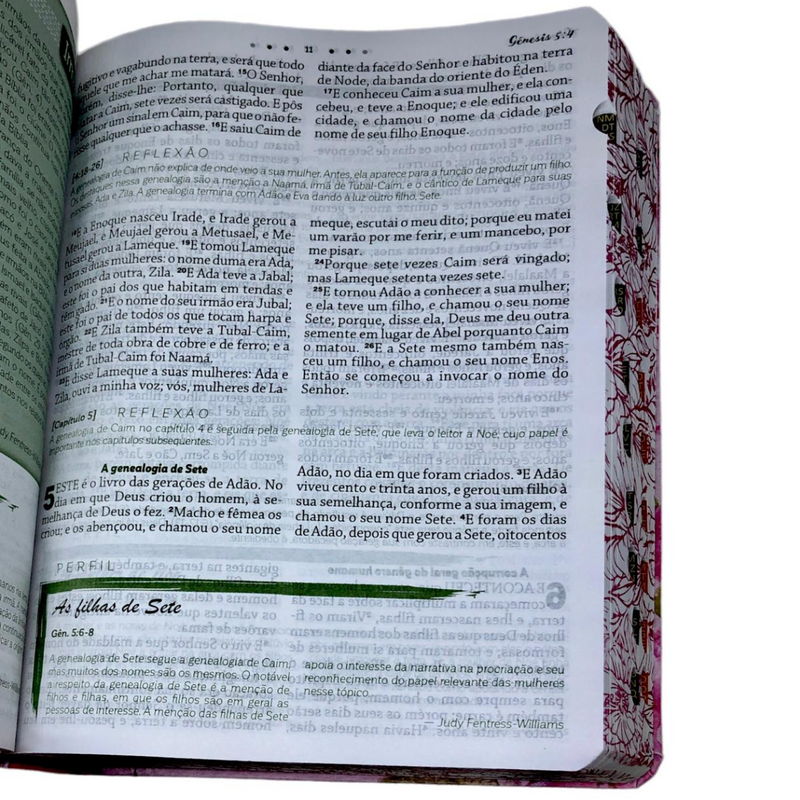 11
Gênesis 5:4
fugitivo e vagabundo na terra, e será que todo
aquele que me achar me matará. ¹⁵O Senhor,
porém, disse-lhe: Portanto, qualquer que
matar a Caim, sete vezes será castigado. E pôs
o Senhor um sinal em Caim, para que o não fe-
risse qualquer que o achasse. ¹⁶E saiu Caim de
diante da face do Senhor e habitou na terra
de Node, da banda do oriente do Éden.
¹⁷E conheceu Caim a sua mulher, e ela con-
cebeu, e teve a Enoque; e ele edificou uma
cidade, e chamou o nome da cidade pelo
nome de seu filho Enoque.
[4:18-26] REFLEXÃO
A genealogia de Caim não explica de onde veio a sua mulher. Antes, ela aparece para a função de produzir um filho.
Os destaques nessa genealogia são a menção a Naamá, irmã de Tubal-Caim, e o cântico de Lameque para suas
esposas, Ada e Zila. A genealogia termina com Adão e Eva dando à luz outro filho, Sete.
¹⁸E a Enoque nasceu Irade, e Irade gerou a
Meujael, e Meujael gerou a Metusael, e Me-
tusael gerou a Lameque. ¹⁹E tomou Lameque
para si duas mulheres: o nome duma era Ada,
e o nome da outra, Zila. ²⁰E Ada teve a Jabal;
este foi o pai dos que habitam em tendas e
têm gado. ²¹E o nome do seu irmão era Jubal;
este foi o pai de todos os que tocam harpa e
órgão. ²²E Zila também teve a Tubal-Caim,
mestre de toda obra de cobre e de ferro; e a
irmã de Tubal-Caim foi Naamá.
²³E disse Lameque a suas mulheres: Ada e
Zila, ouvi a minha voz; vós, mulheres de La-
meque, escutai o meu dito; porque eu matei
um varão por me ferir, e um mancebo, por
me pisar.
²⁴Porque sete vezes Caim será vingado;
mas Lameque setenta vezes sete.
²⁵E tornou Adão a conhecer a sua mulher;
e ela teve um filho, e chamou o seu nome
Sete; porque, disse ela, Deus me deu outra
semente em lugar de Abel porquanto Caim
o matou. ²⁶E a Sete mesmo também nas-
ceu um filho, e chamou o seu nome Enos.
Então se começou a invocar o nome do
Senhor.
[Capítulo 5] REFLEXÃO
A genealogia de Caim no capítulo 4 é seguida pela genealogia de Sete, que leva o leitor a Noé, cujo papel é
importante nos capítulos subsequentes.
A genealogia de Sete
5 ESTE é o livro das gerações de Adão. No
dia em que Deus criou o homem, à se-
melhança de Deus o fez. ²Macho e fêmea os
criou; e os abençoou, e chamou o seu nome
Adão, no dia em que foram criados. ³E Adão
viveu cento e trinta anos, e gerou um filho à
sua semelhança, conforme a sua imagem, e
chamou o seu nome Sete. ⁴E foram os dias
de Adão, depois que gerou a Sete, oitocentos
PERFIL
As filhas de Sete
Gên. 5:6-8
A genealogia de Sete segue a genealogia de Caim,
mas muitos dos nomes são os mesmos. O notável
a respeito da genealogia de Sete é a menção de
filhos e filhas, em que os filhos são em geral as
pessoas de interesse. A menção das filhas de Sete
apoia o interesse da narrativa na procriação e seu
reconhecimento do papel relevante das mulheres
nesse tópico.
— Judy Fentress-Williams
NM
DT
S